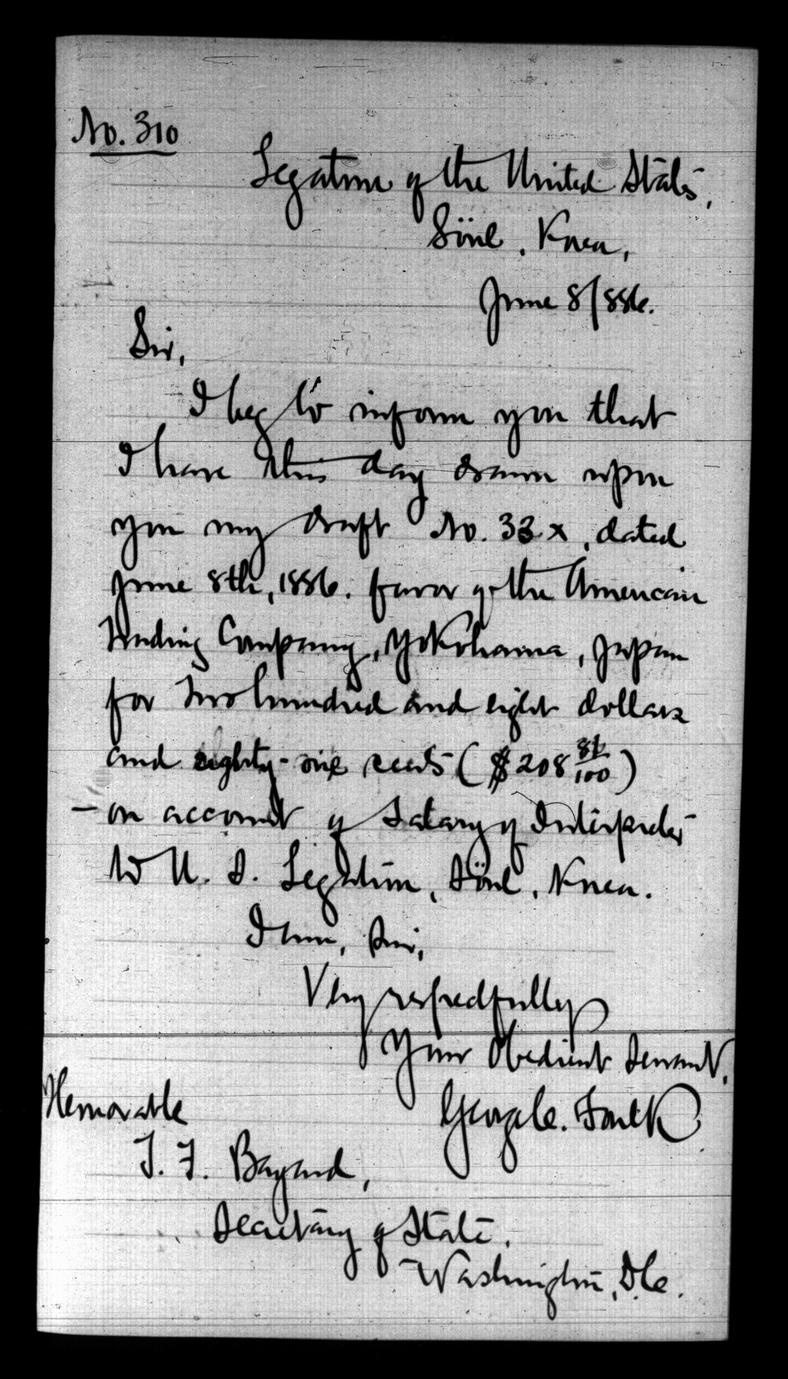 No. 310
Legation of the United States,
Söul, Korea,
June 8/886.
Sir,
I beg to inform you that
I have this day drawn upon
you my draft No. 33 x, dated
June 8th, 1886. favor of the American
Trading Company, Yokohama, Japan
for Two hundred and eight dollars
and eighty-one cents ($208 81/100)
— on account of Salary of Interpreter
to U. S. Legation, Söul, Korea.
I am, Sir,
Very respectfully
Your Obedient Servant,
George C. Foulk
Honorable
T. F. Bayard,
Secretary of State,
Washington, D.C.